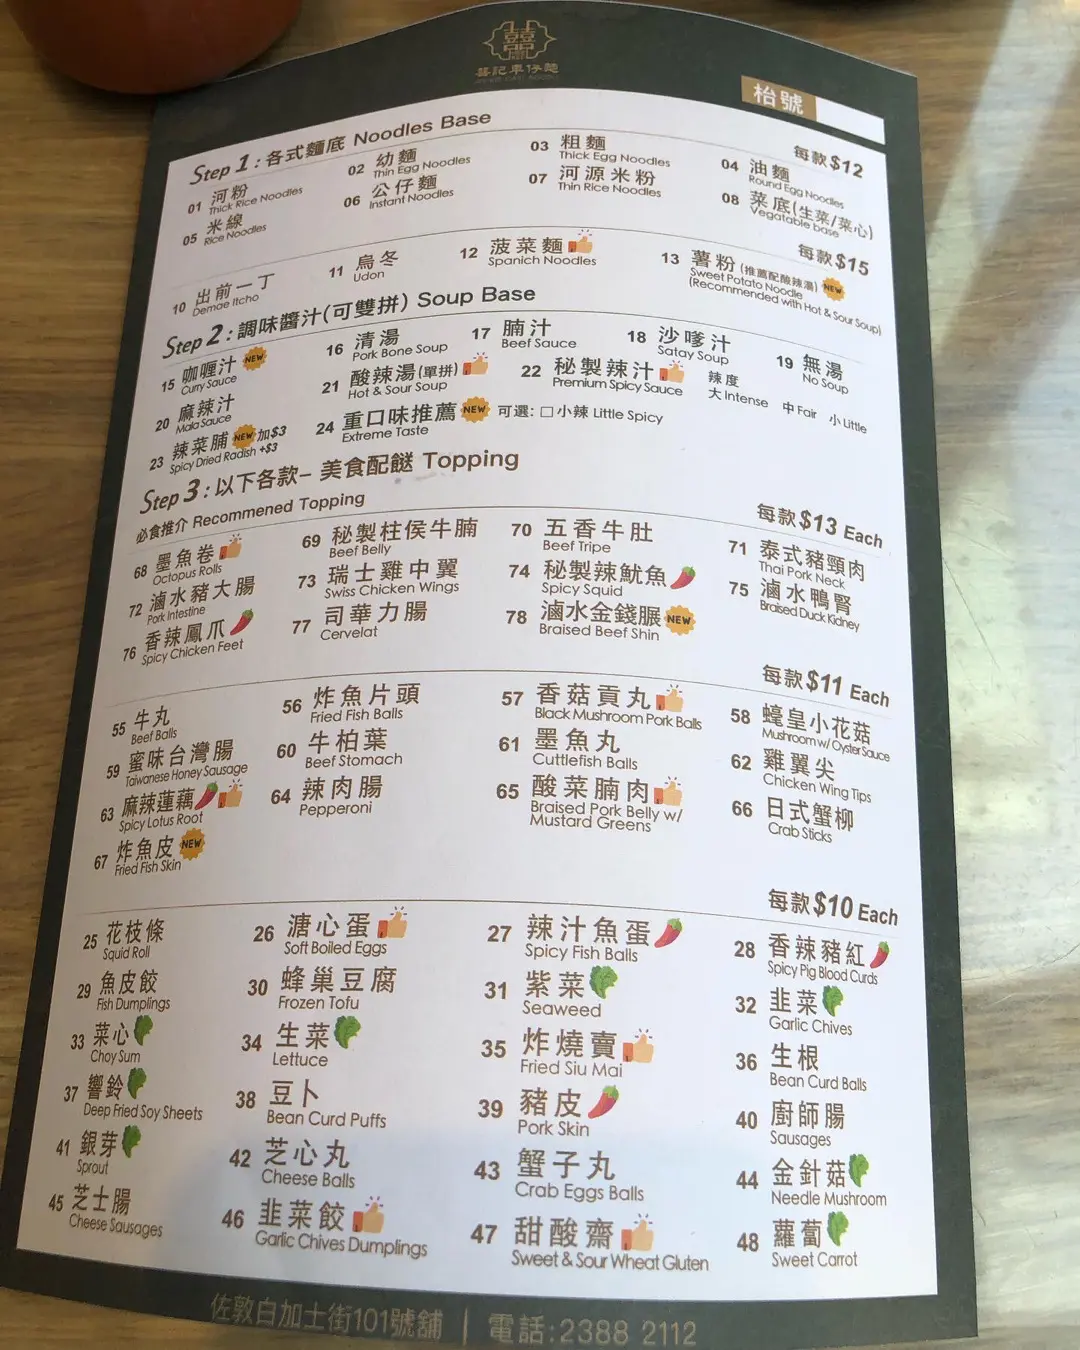 囍
囍記車仔麵
枱號
Step 1 : 各式麵底 Noodles Base
每款$12
01 河粉 Thick Rice Noodles
02 幼麵 Thin Egg Noodles
03 粗麵 Thick Egg Noodles
04 油麵 Round Egg Noodles
05 米線 Rice Noodles
06 公仔麵 Instant Noodles
07 河源米粉 Thin Rice Noodles
08 菜底(生菜/菜心) Vegatable base
每款$15
10 出前一丁 Demae Itcho
11 烏冬 Udon
12 菠菜麵 Spanich Noodles
13 薯粉(推薦配酸辣湯) NEW Sweet Potato Noodle
(Recommended with Hot & Sour Soup)
Step 2 : 調味醬汁(可雙拼) Soup Base
15 咖喱汁 NEW Curry Sauce
16 清湯 Pork Bone Soup
17 腩汁 Beef Sauce
18 沙嗲汁 Satay Soup
19 無湯 No Soup
20 麻辣汁 Mala Sauce
21 酸辣湯(單拼) Hot & Sour Soup
22 秘製辣汁 Premium Spicy Sauce
辣度
大Intense 中Fair 小Little
23 辣菜脯 NEW 加$3 Spicy Dried Radish +$3
24 重口味推薦 NEW Extreme Taste
可選: □小辣 Little Spicy
Step 3 : 以下各款– 美食配餸 Topping
必食推介 Recommened Topping
每款$13 Each
68 墨魚卷 Octopus Rolls
69 秘製柱侯牛腩 Beef Belly
70 五香牛肚 Beef Tripe
71 泰式豬頸肉 Thai Pork Neck
72 滷水豬大腸 Pork Intestine
73 瑞士雞中翼 Swiss Chicken Wings
74 秘製辣魷魚 Spicy Squid
75 滷水鴨腎 Braised Duck Kidney
76 香辣鳳爪 Spicy Chicken Feet
77 司華力腸 Cervelat
78 滷水金錢𦟌 NEW Braised Beef Shin
每款$11 Each
55 牛丸 Beef Balls
56 炸魚片頭 Fried Fish Balls
57 香菇貢丸 Black Mushroom Pork Balls
58 蠔皇小花菇 Mushroom w/ Oyster Sauce
59 蜜味台灣腸 Taiwanese Honey Sausage
60 牛柏葉 Beef Stomach
61 墨魚丸 Cuttlefish Balls
62 雞翼尖 Chicken Wing Tips
63 麻辣蓮藕 Spicy Lotus Root
64 辣肉腸 Pepperoni
65 酸菜腩肉 Braised Pork Belly w/
Mustard Greens
66 日式蟹柳 Crab Sticks
67 炸魚皮 NEW Fried Fish Skin
每款$10 Each
25 花枝條 Squid Roll
26 溏心蛋 Soft Boiled Eggs
27 辣汁魚蛋 Spicy Fish Balls
28 香辣豬紅 Spicy Pig Blood Curds
29 魚皮餃 Fish Dumplings
30 蜂巢豆腐 Frozen Tofu
31 紫菜 Seaweed
32 韭菜 Garlic Chives
33 菜心 Choy Sum
34 生菜 Lettuce
35 炸燒賣 Fried Siu Mai
36 生根 Bean Curd Balls
37 響鈴 Deep Fried Soy Sheets
38 豆卜 Bean Curd Puffs
39 豬皮 Pork Skin
40 廚師腸 Sausages
41 銀芽 Sprout
42 芝心丸 Cheese Balls
43 蟹子丸 Crab Eggs Balls
44 金針菇 Needle Mushroom
45 芝士腸 Cheese Sausages
46 韭菜餃 Garlic Chives Dumplings
47 甜酸齋 Sweet & Sour Wheat Gluten
48 蘿蔔 Sweet Carrot
佐敦白加士街101號舖 | 電話:2388 2112